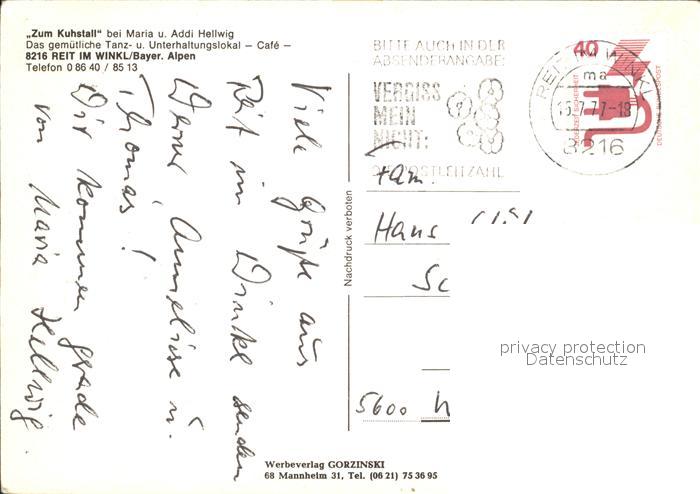 „Zum Kuhstall“ bei Maria u. Addi Hellwig
Das gemütliche Tanz- u. Unterhaltungslokal — Café —
8216 REIT IM WINKL/Bayer. Alpen
Telefon 0 86 40 / 85 13
Viele Grüße aus
Reit im Winkl senden
Werner, Anneliese u.
Thomas!
Wir kommen gerade
von Maria Hellwig.
Nachdruck verboten
Werbeverlag GORZINSKI
68 Mannheim 31, Tel. (06 21) 75 36 95
BITTE AUCH IN DER
ABSENDERANGABE:
VERGISS
MEIN
NICHT:
DIE POSTLEITZAHL
REIT IM WINKL
ma
77-18
8216
40
DEUTSCHE BUNDESPOST
Fam.
Hans
Sc
5600
privacy protection
Datenschutz